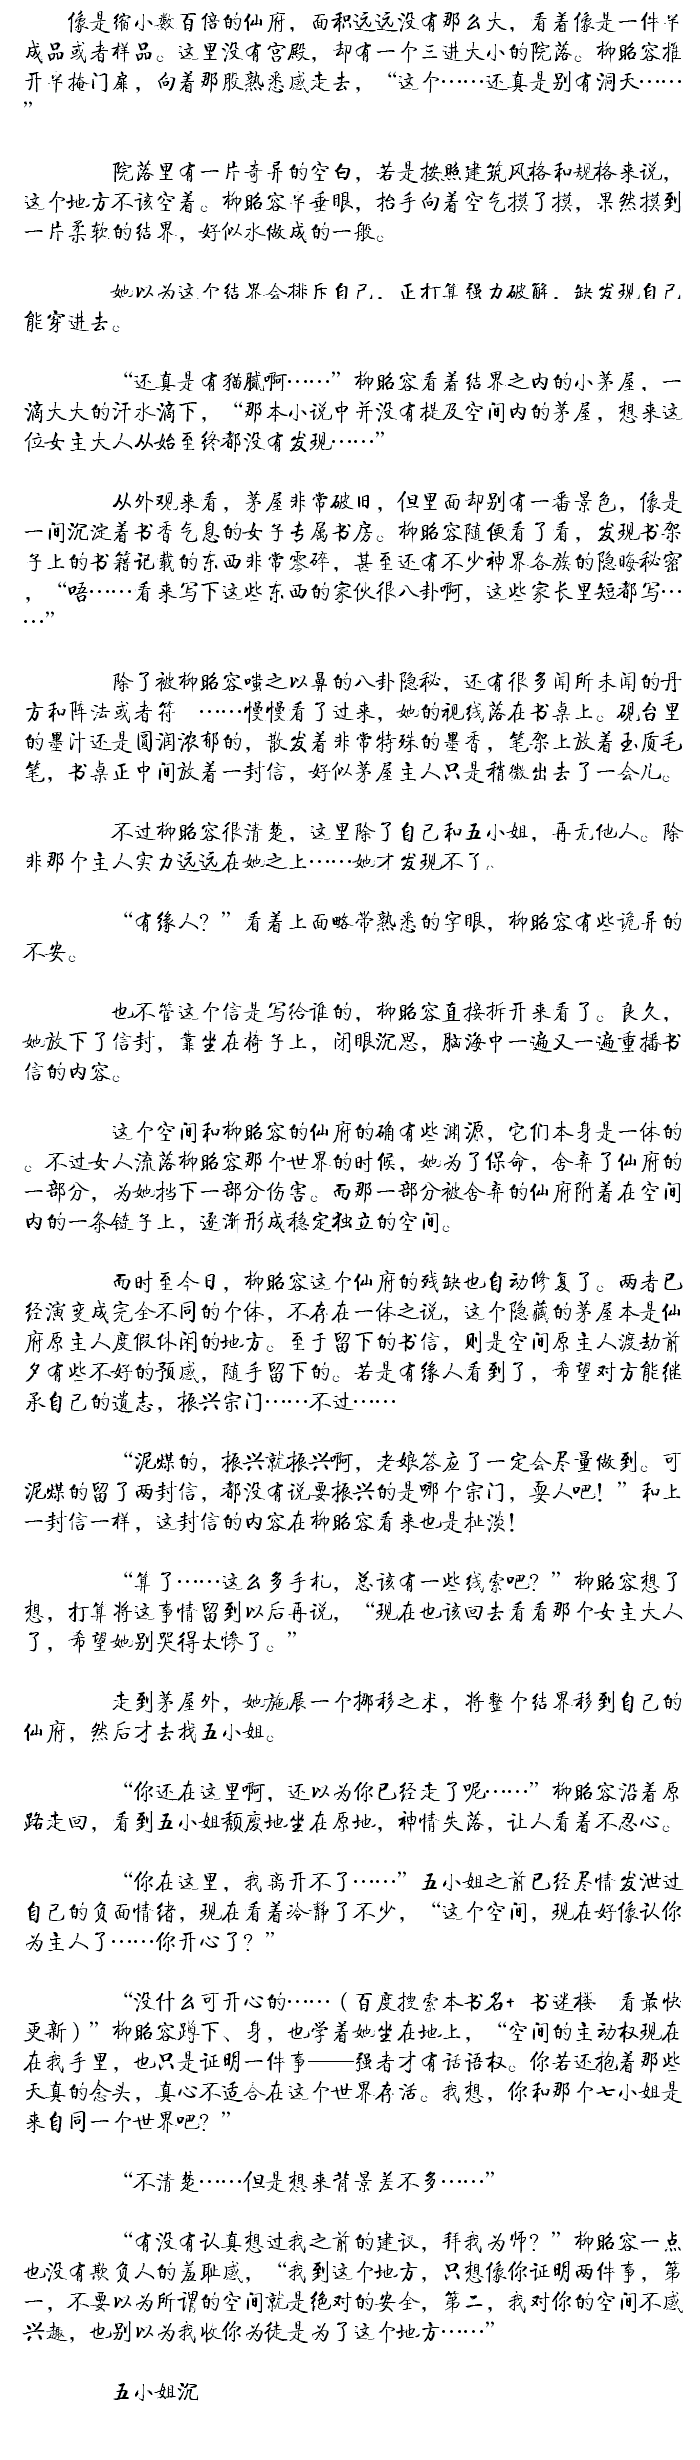 像是缩小数百倍的仙府，面积远远没有那么大，看着像是一件半
成品或者样品。这里没有宫殿，却有一个三进大小的院落。柳昭容推
开半掩门扉，向着那股熟悉感走去，“这个……还真是别有洞天……
”
院落里有一片奇异的空白，若是按照建筑风格和规格来说，
这个地方不该空着。柳昭容半垂眼，抬手向着空气摸了摸，果然摸到
一片柔软的结界，好似水做成的一般。
她以为这个结界会排斥自己，正打算强力破解，缺发现自己
能穿进去。
“还真是有猫腻啊……”柳昭容看着结界之内的小茅屋，一
滴大大的汗水滴下，“那本小说中并没有提及空间内的茅屋，想来这
位女主大人从始至终都没有发现……”
从外观来看，茅屋非常破旧，但里面却别有一番景色，像是
一间沉淀着书香气息的女子专属书房。柳昭容随便看了看，发现书架
子上的书籍记载的东西非常零碎，甚至还有不少神界各族的隐晦秘密
，“唔……看来写下这些东西的家伙很八卦啊，这些家长里短都写…
…”
除了被柳昭容嗤之以鼻的八卦隐秘，还有很多闻所未闻的丹
方和阵法或者符 ……慢慢看了过来，她的视线落在书桌上。砚台里
的墨汁还是圆润浓郁的，散发着非常特殊的墨香，笔架上放着玉质毛
笔，书桌正中间放着一封信，好似茅屋主人只是稍微出去了一会儿。
不过柳昭容很清楚，这里除了自己和五小姐，再无他人。除
非那个主人实力远远在她之上……她才发现不了。
“有缘人？”看着上面略带熟悉的字眼，柳昭容有些诡异的
不安。
也不管这个信是写给谁的，柳昭容直接拆开来看了。良久，
她放下了信封，靠坐在椅子上，闭眼沉思，脑海中一遍又一遍重播书
信的内容。
这个空间和柳昭容的仙府的确有些渊源，它们本身是一体的
。不过女人流落柳昭容那个世界的时候，她为了保命，舍弃了仙府的
一部分，为她挡下一部分伤害。而那一部分被舍弃的仙府附着在空间
内的一条链子上，逐渐形成稳定独立的空间。
而时至今日，柳昭容这个仙府的残缺也自动修复了。两者已
经演变成完全不同的个体，不存在一体之说，这个隐藏的茅屋本是仙
府原主人度假休闲的地方。至于留下的书信，则是空间原主人渡劫前
夕有些不好的预感，随手留下的。若是有缘人看到了，希望对方能继
承自己的遗志，振兴宗门……不过……
“泥煤的，振兴就振兴啊，老娘答应了一定会尽量做到。可
泥煤的留了两封信，都没有说要振兴的是哪个宗门，耍人吧！”和上
一封信一样，这封信的内容在柳昭容看来也是扯淡！
“算了……这么多手札，总该有一些线索吧？”柳昭容想了
想，打算将这事情留到以后再说，“现在也该回去看看那个女主大人
了，希望她别哭得太惨了。”
走到茅屋外，她施展一个挪移之术，将整个结界移到自己的
仙府，然后才去找五小姐。
“你还在这里啊，还以为你已经走了呢……”柳昭容沿着原
路走回，看到五小姐颓废地坐在原地，神情失落，让人看着不忍心。
“你在这里，我离开不了……”五小姐之前已经尽情发泄过
自己的负面情绪，现在看着冷静了不少，“这个空间，现在好像认你
为主人了……你开心了？”
“没什么可开心的……（百度搜索本书名+ 书迷楼 看最快
更新）”柳昭容蹲下、身，也学着她坐在地上，“空间的主动权现在
在我手里，也只是证明一件事——强者才有话语权。你若还抱着那些
天真的念头，真心不适合在这个世界存活。我想，你和那个七小姐是
来自同一个世界吧？”
“不清楚……但是想来背景差不多……”
“有没有认真想过我之前的建议，拜我为师？”柳昭容一点
也没有欺负人的羞耻感，“我到这个地方，只想像你证明两件事，第
一，不要以为所谓的空间就是绝对的安全，第二，我对你的空间不感
兴趣，也别以为我收你为徒是为了这个地方……”
五小姐沉